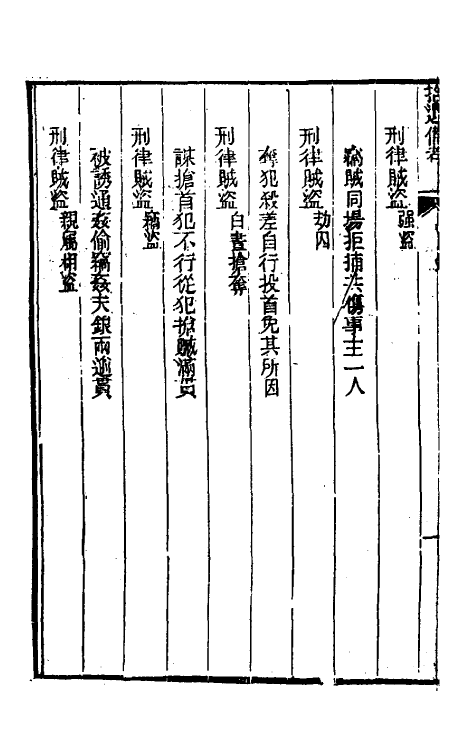 刑律賊盜 強盜
竊賊同場拒捕共傷事主一人
刑律賊盜 劫囚
奪犯殺差自行投首免其所因
刑律賊盜 白晝搶奪
謀搶首犯不行從犯搶贓滿貫
刑律賊盜 竊盜
被誘通姦偷竊姦夫銀兩逾貫
刑律賊盜 親屬相盜